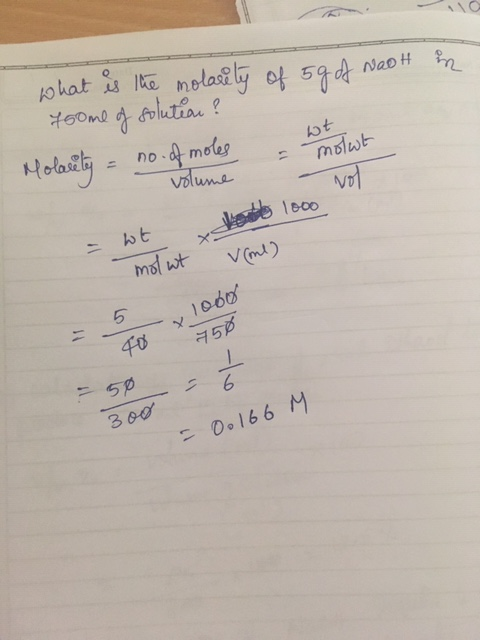 What is the molarity of 5g of NaOH in
750ml of solution?
Molarity = no. of moles / volume = wt / mol wt / vol
= wt / mol wt × 1000 / V(ml)
= 5 / 40 × 1000 / 750
= 50 / 300 = 1 / 6
= 0.166 M